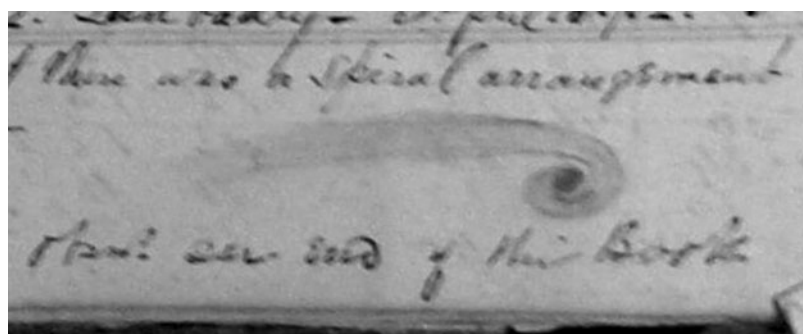 there was a spiral arrangement
obsns see end of this Book